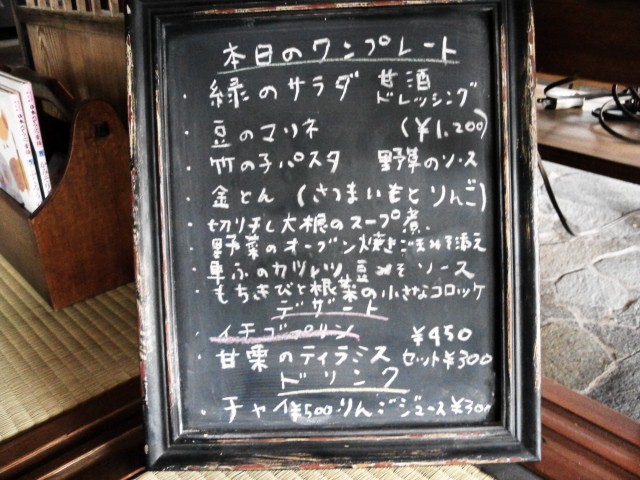 本日のワンプレート
・緑のサラダ 甘酒ドレッシング
・豆のマリネ (¥1,200)
・竹の子パスタ 野草のソース
・金とん (さつまいもとりんご)
・切り干し大根のスープ煮
・野菜のオーブン焼きごまみそ添え
・車ふのカツレツ 豆みそソース
・もちきびと根菜の小さなコロッケ
デザート
・イチゴプリン ¥450
・甘栗のティラミス セット¥300
ドリンク
・チャイ¥500 りんごジュース¥300